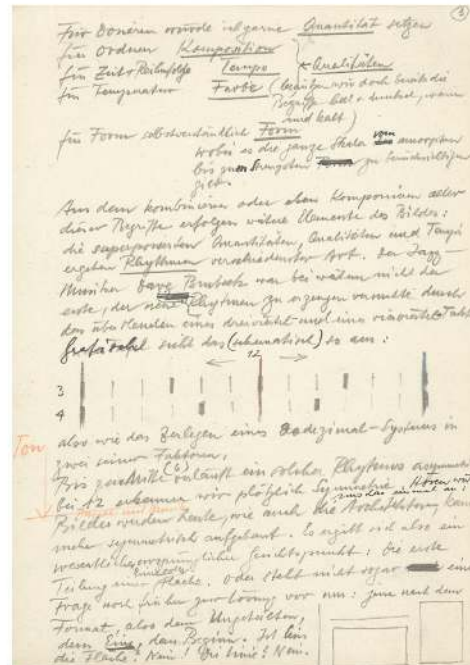 3
Für Dosieren würde ich gerne Quantität setzen
für Ordnen Komposition
für Zeit + Reihenfolge Tempo Qualitäten
für Temperatur Farbe (besitzen wir doch bereits die
Begriffe hell + dunkel, warm
und kalt.)
für Form selbstverständlich Form
wobei es die ganze Skala vom amorphen
bis zum strengsten zu berücksichtigen
gilt.
Aus dem kombinieren oder eben Komponieren aller
dieser Begriffe erfolgen weitere Elemente des Bildes:
die superponierten Quantitäten, Qualitäten und Tempi
ergeben Rhythmen verschiedenster Art. Der Jazz-
Musiker Dave Brubeck war bei weitem nicht der
erste, der neue Rhythmen zu erzeugen vermochte durch
das überblenden eines dreiviertel und eines viervierteltakts
sieht das (schematisch) so aus:
12
3
4
also wie das Zerlegen eines Duodezimal-Systems in
zwei seiner Faktoren.
Ton
Bis zur Mitte (6) verläuft ein solcher Rhythmus asymmetrisch
bei 12 erkennen wir plötzlich Symmetrie. Hören wir
uns das einmal an!
Bilder werden heute, wie auch die Architektur, kaum
mehr symmetrisch aufgebaut. Es ergibt sich also ein
wesentlicher ursprünglicher Gesichtspunkt: die erste
Teilung einer Fläche. Oder stellt nicht sogar eine
Frage noch früher zur Lösung vor uns: jene nach dem
Format, also dem Ungeteilten,
dem Eins, dem Beginn. Ist hier
die Fläche? Nein! Die Linie? Nein.